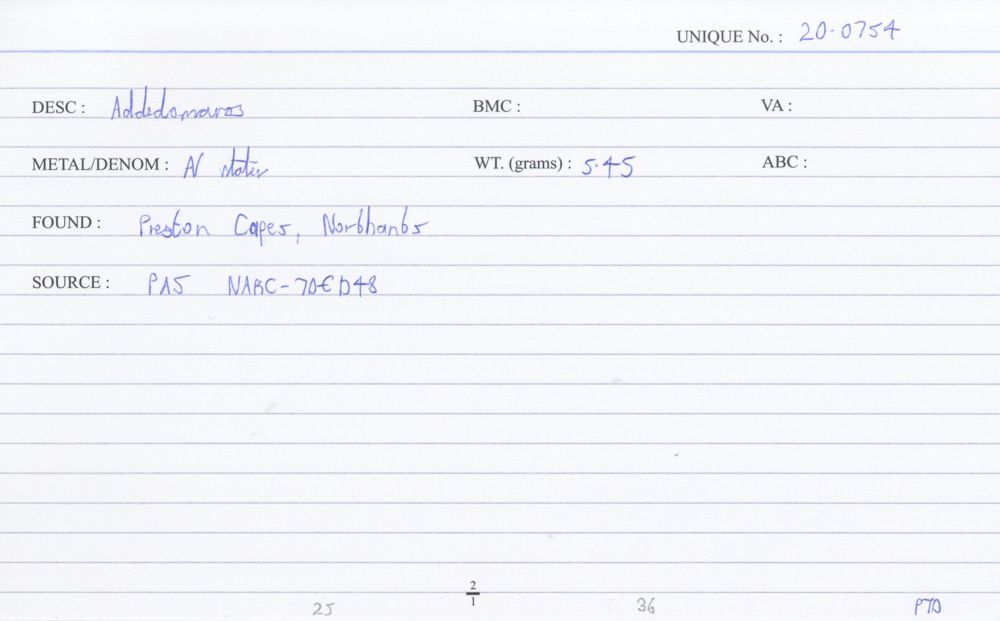 UNIQUE No. : 20-0754
DESC : Addedomaros BMC : VA :
METAL/DENOM : AV stater WT. (grams) : 5.45 ABC :
FOUND : Preston Capes, Northants
SOURCE : PAS NARC-7DED48
2
1
25 36 PTO